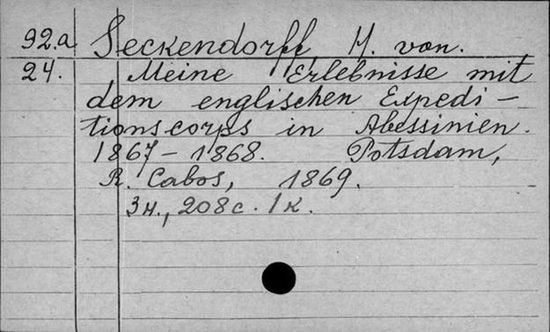 92.a Seckendorff H. von.
24. Meine Erlebnisse mit
dem englischen Expedi-
tionscorps in Abessinien.
1867-1868. Potsdam,
R. Cabos, 1869.
3н., 208с. 1к.